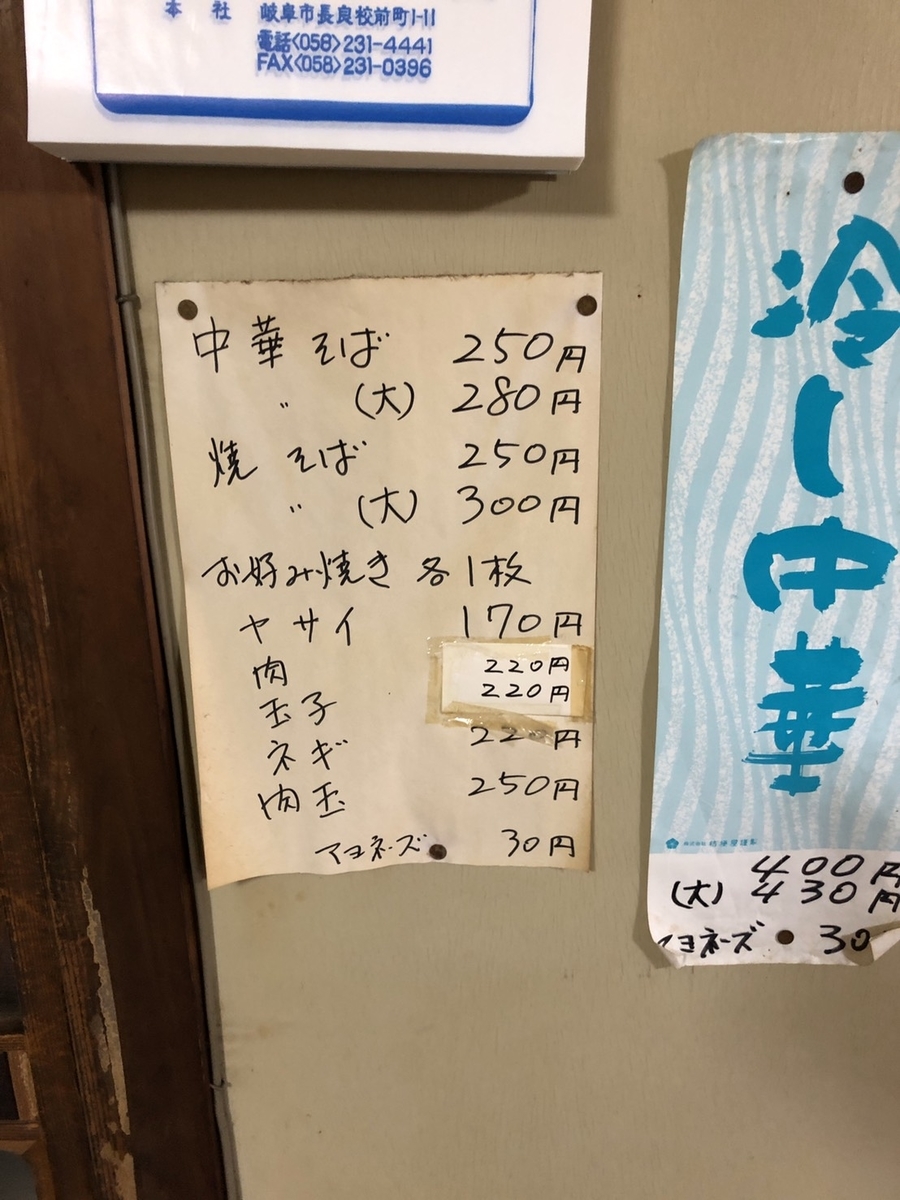 本 社 岐阜市長良校前町1-11
電話<058>231-4441
FAX<058>231-0396
中華そば 250円
〃 (大) 280円
焼そば 250円
〃 (大) 300円
お好み焼き 各1枚
ヤサイ 170円
肉 220円
玉子 220円
ネギ 220円
肉玉 250円
マヨネーズ 30円
冷し中華
400円
(大) 430円
マヨネーズ 30